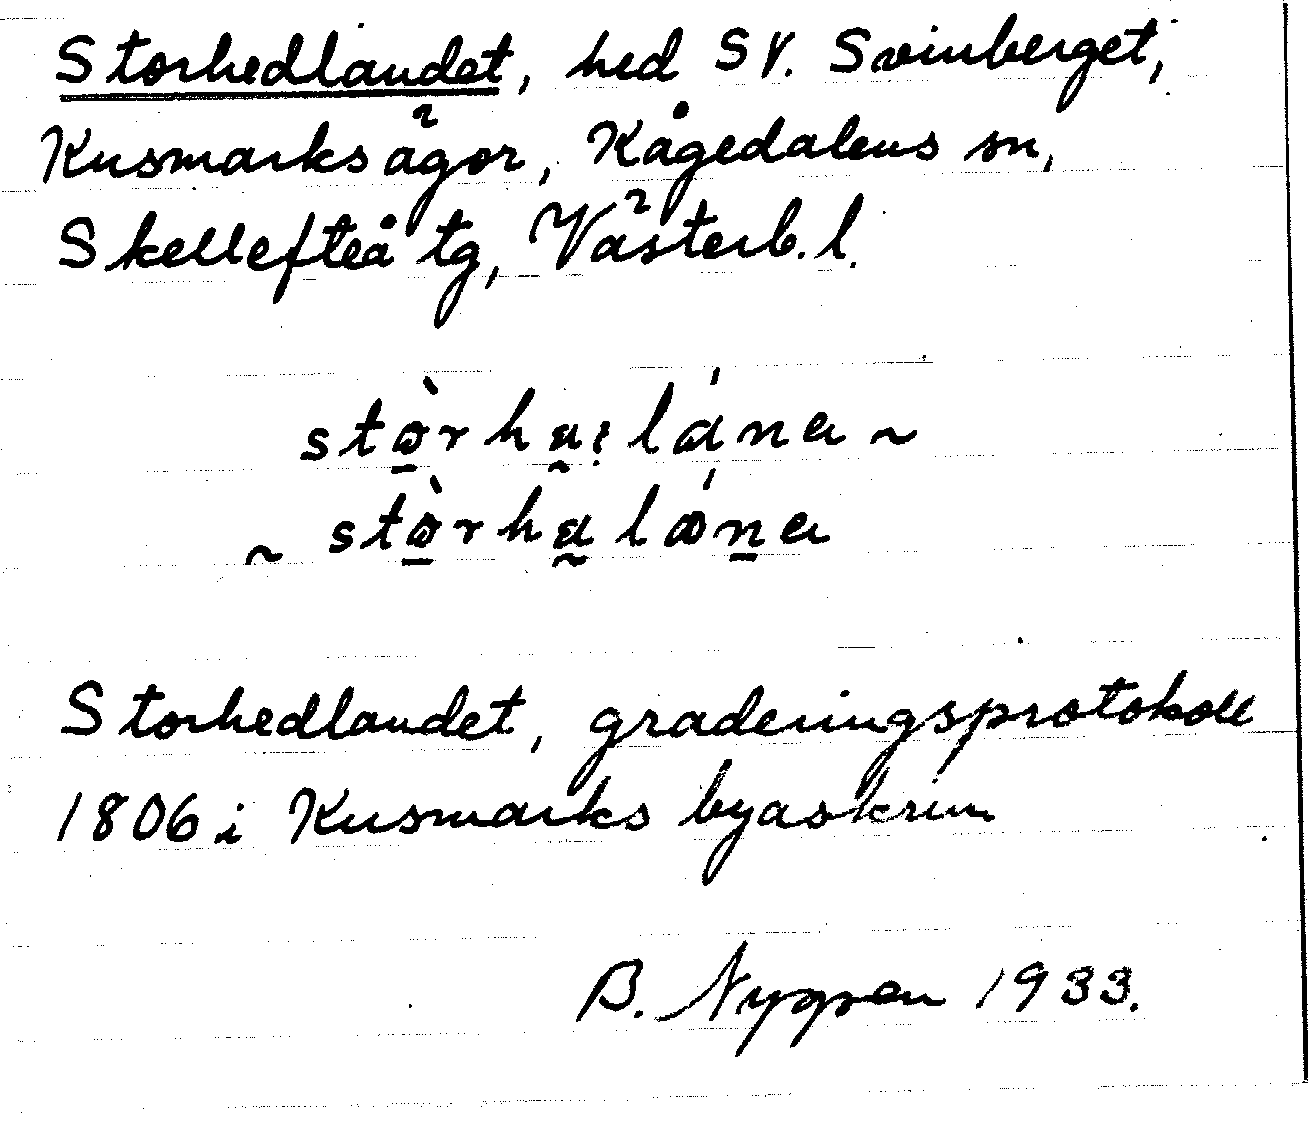 Storhedlandet, hed SV. Svinberget,
Kusmarks ägor, Kågedalens sn,
Skellefteå tg, Västerb. l.
Storhedlandet, graderingsprotokoll
1806 i Kusmarks byaskrin
B. Nygren 1933.